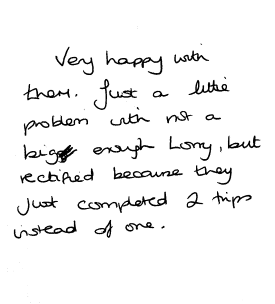 Very happy with
them. Just a little
problem with not a
big enough Lorry, but
rectified because they
Just completed 2 trips
instead of one.